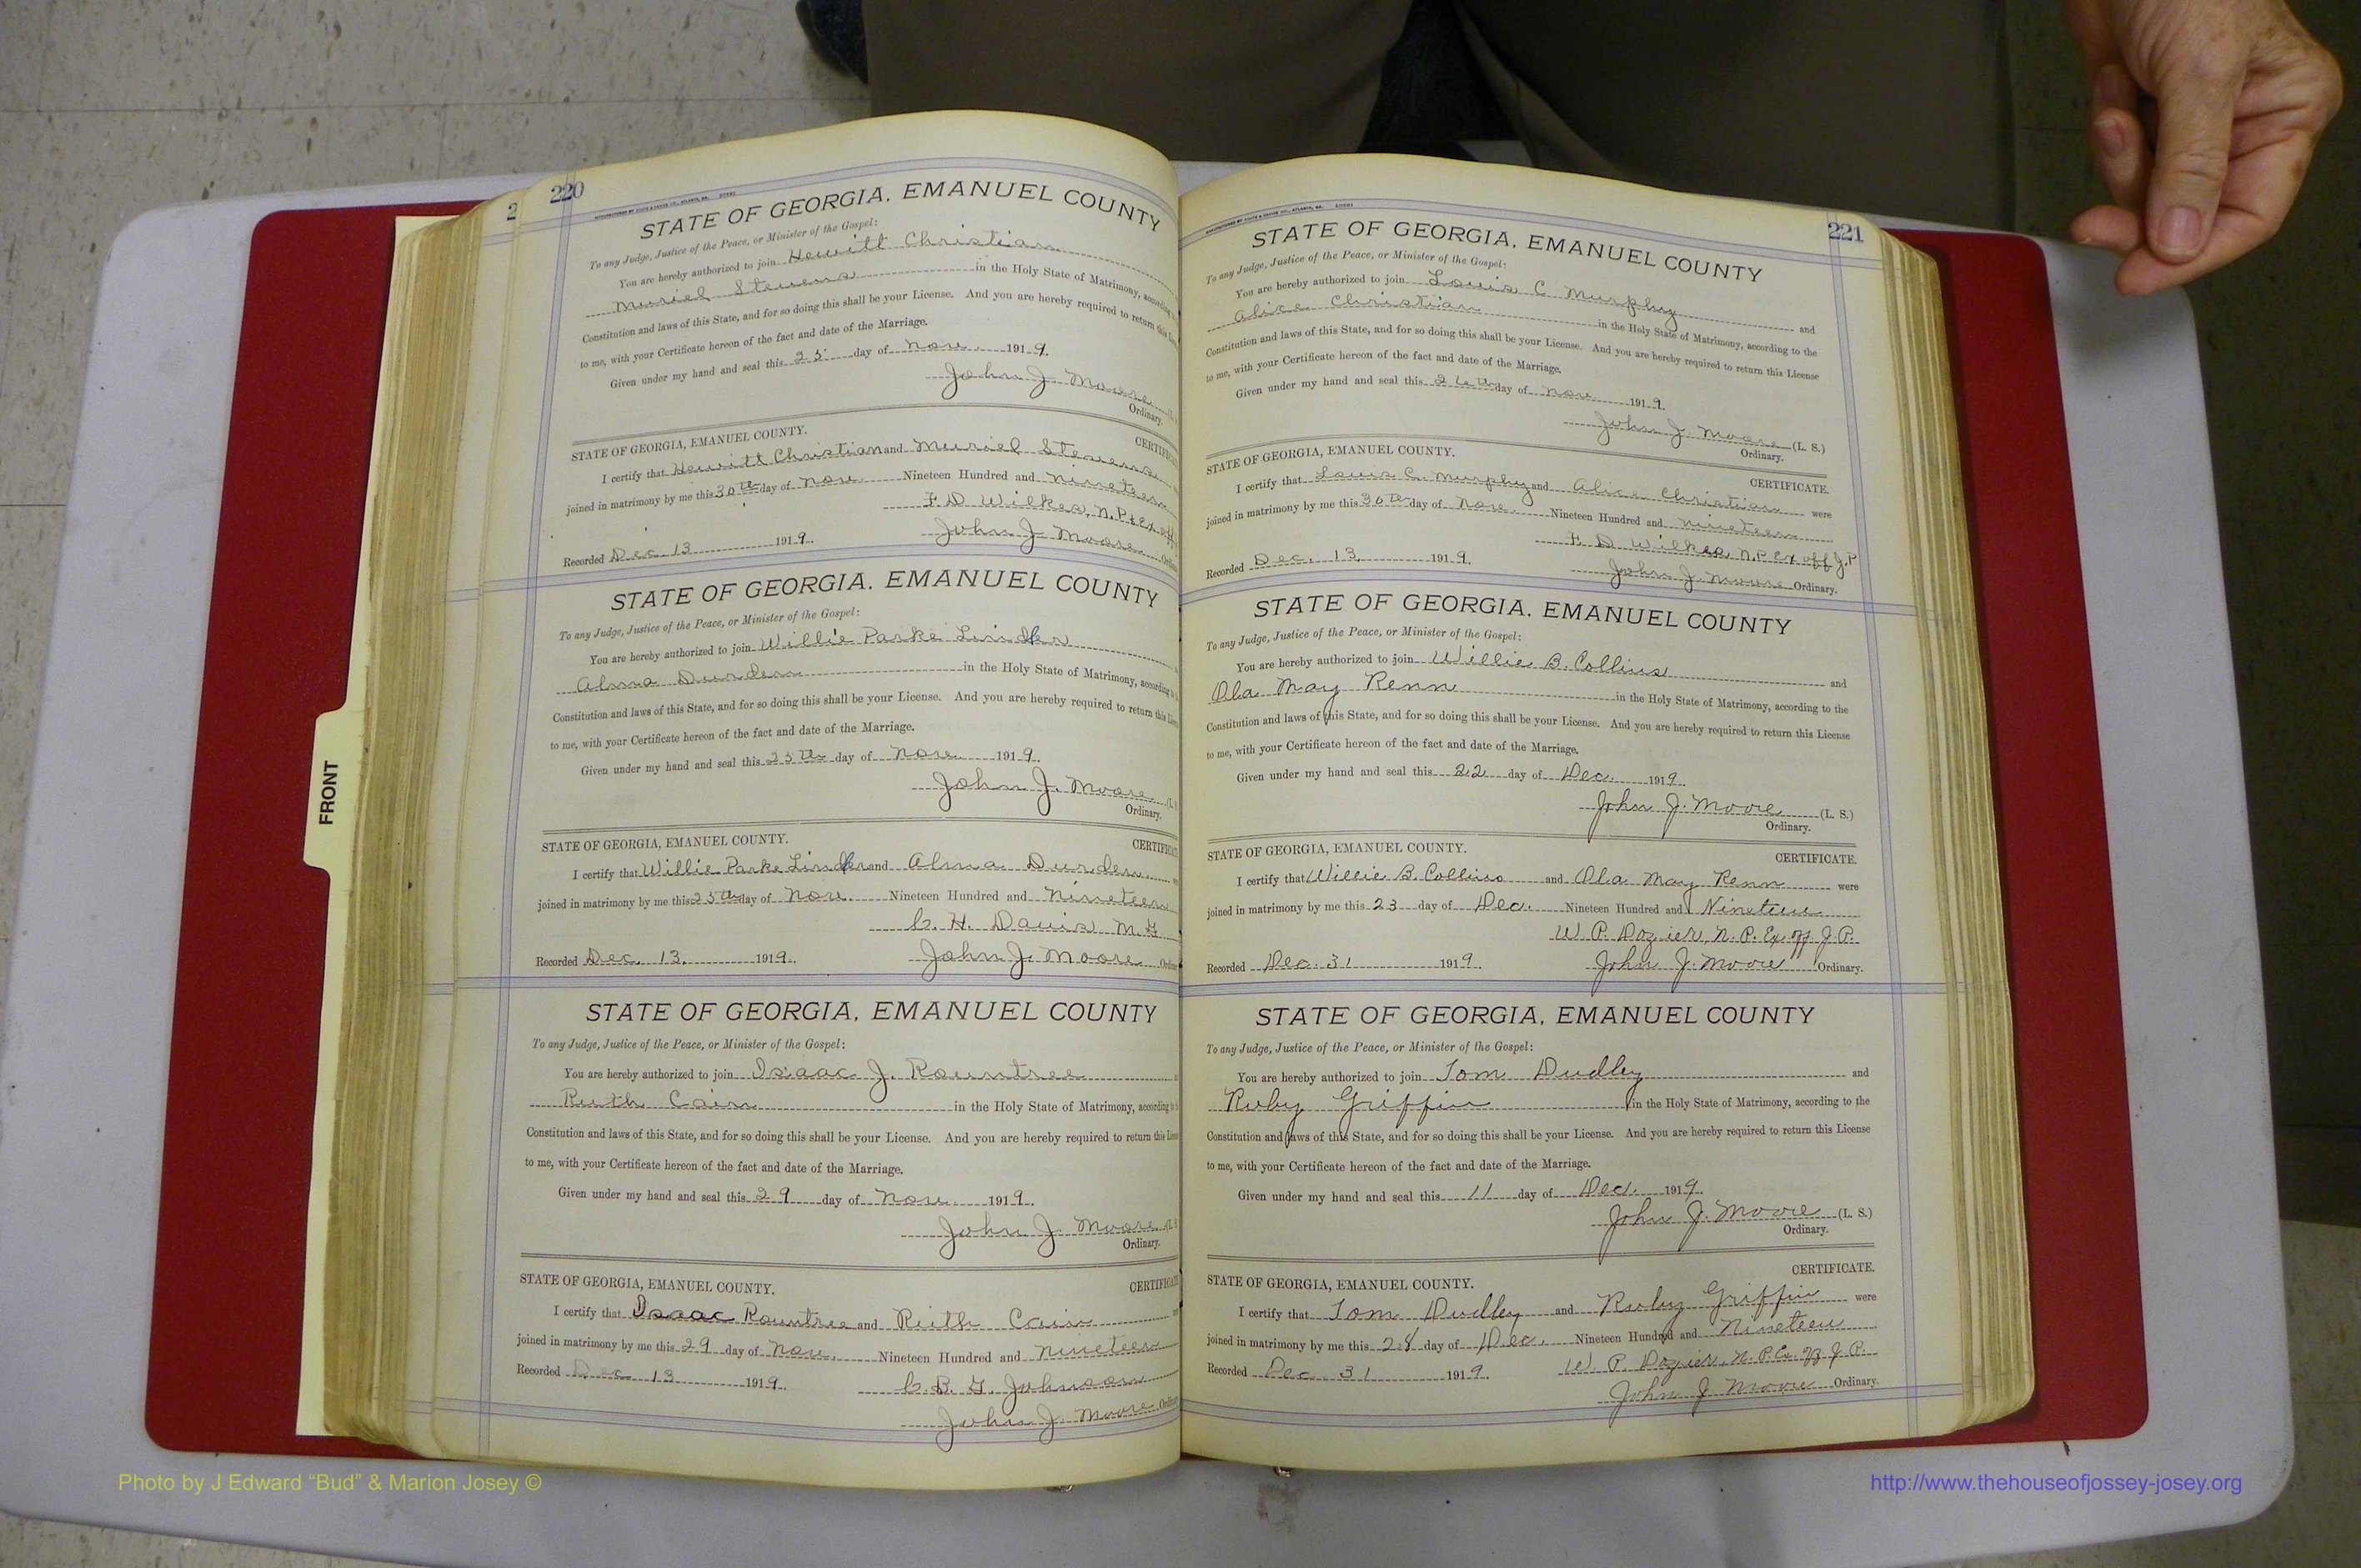 220
STATE OF GEORGIA, EMANUEL COUNTY
To any Judge, Justice of the Peace, or Minister of the Gospel:
You are hereby authorized to join Hewitt Christian
Muriel Stevens in the Holy State of Matrimony, according
Constitution and laws of this State, and for so doing this shall be your License. And you are hereby required to return this
to me, with your Certificate hereon of the fact and date of the Marriage.
Given under my hand and seal this 25 day of Nov. 1919.
John J. Moore
Ordinary.
STATE OF GEORGIA, EMANUEL COUNTY. CERTIFICA
I certify that Hewitt Christian and Muriel Stevens
joined in matrimony by me this 30th day of Nov. Nineteen Hundred and nineteen
F. D. Wilkes, N.P. & Ex off
Recorded Dec. 13 1919. John J. Moore
STATE OF GEORGIA, EMANUEL COUNTY
To any Judge, Justice of the Peace, or Minister of the Gospel:
You are hereby authorized to join Willie Parke Linder
Alma Durden in the Holy State of Matrimony, according
Constitution and laws of this State, and for so doing this shall be your License. And you are hereby required to return this
to me, with your Certificate hereon of the fact and date of the Marriage.
Given under my hand and seal this 25th day of Nov. 1919.
John J. Moore
Ordinary.
STATE OF GEORGIA, EMANUEL COUNTY. CERTIFICA
I certify that Willie Parke Linder and Alma Durden
joined in matrimony by me this 25th day of Nov. Nineteen Hundred and Nineteen
C. H. Davis M.G.
Recorded Dec. 13. 1919. John J. Moore
STATE OF GEORGIA, EMANUEL COUNTY
To any Judge, Justice of the Peace, or Minister of the Gospel:
You are hereby authorized to join Isaac J. Rountree
Ruth Cain in the Holy State of Matrimony, according
Constitution and laws of this State, and for so doing this shall be your License. And you are hereby required to return this
to me, with your Certificate hereon of the fact and date of the Marriage.
Given under my hand and seal this 29 day of Nov. 1919.
John J. Moore
Ordinary.
STATE OF GEORGIA, EMANUEL COUNTY. CERTIFICA
I certify that Isaac Rountree and Ruth Cain
joined in matrimony by me this 29 day of Nov. Nineteen Hundred and nineteen
Recorded Dec 13 1919. C. B. G. Johnson
John J. Moore
221
STATE OF GEORGIA, EMANUEL COUNTY
To any Judge, Justice of the Peace, or Minister of the Gospel:
You are hereby authorized to join Louis C Murphy and
Alice Christian in the Holy State of Matrimony, according to the
Constitution and laws of this State, and for so doing this shall be your License. And you are hereby required to return this License
to me, with your Certificate hereon of the fact and date of the Marriage.
Given under my hand and seal this 26th day of Nov. 1919.
John J. Moore (L. S.)
Ordinary.
STATE OF GEORGIA, EMANUEL COUNTY. CERTIFICATE.
I certify that Louis C. Murphy and Alice Christian were
joined in matrimony by me this 30th day of Nov. Nineteen Hundred and nineteen
F. D. Wilkes, N.P. Ex off J.P
Recorded Dec. 13, 1919. John J. Moore Ordinary.
STATE OF GEORGIA, EMANUEL COUNTY
To any Judge, Justice of the Peace, or Minister of the Gospel:
You are hereby authorized to join Willie B. Collins and
Ola May Renn in the Holy State of Matrimony, according to the
Constitution and laws of this State, and for so doing this shall be your License. And you are hereby required to return this License
to me, with your Certificate hereon of the fact and date of the Marriage.
Given under my hand and seal this 22 day of Dec. 1919.
John J. Moore (L. S.)
Ordinary.
STATE OF GEORGIA, EMANUEL COUNTY. CERTIFICATE.
I certify that Willie B. Collins and Ola May Renn were
joined in matrimony by me this 23 day of Dec. Nineteen Hundred and Nineteen
W. P. Dozier, N. P. Ex off J. P.
Recorded Dec. 31 1919. John J. Moore Ordinary.
STATE OF GEORGIA, EMANUEL COUNTY
To any Judge, Justice of the Peace, or Minister of the Gospel:
You are hereby authorized to join Tom Dudley and
Ruby Griffin in the Holy State of Matrimony, according to the
Constitution and laws of this State, and for so doing this shall be your License. And you are hereby required to return this License
to me, with your Certificate hereon of the fact and date of the Marriage.
Given under my hand and seal this 11 day of Dec. 1919.
John J. Moore (L. S.)
Ordinary.
STATE OF GEORGIA, EMANUEL COUNTY. CERTIFICATE.
I certify that Tom Dudley and Ruby Griffin were
joined in matrimony by me this 28 day of Dec. Nineteen Hundred and Nineteen
Recorded Dec. 31 1919. W. P. Dozier, N. P. Ex. off J. P.
John J Moore Ordinary.
FRONT
Photo by J Edward “Bud” & Marion Josey ©
http://www.thehouseofjossey-josey.org